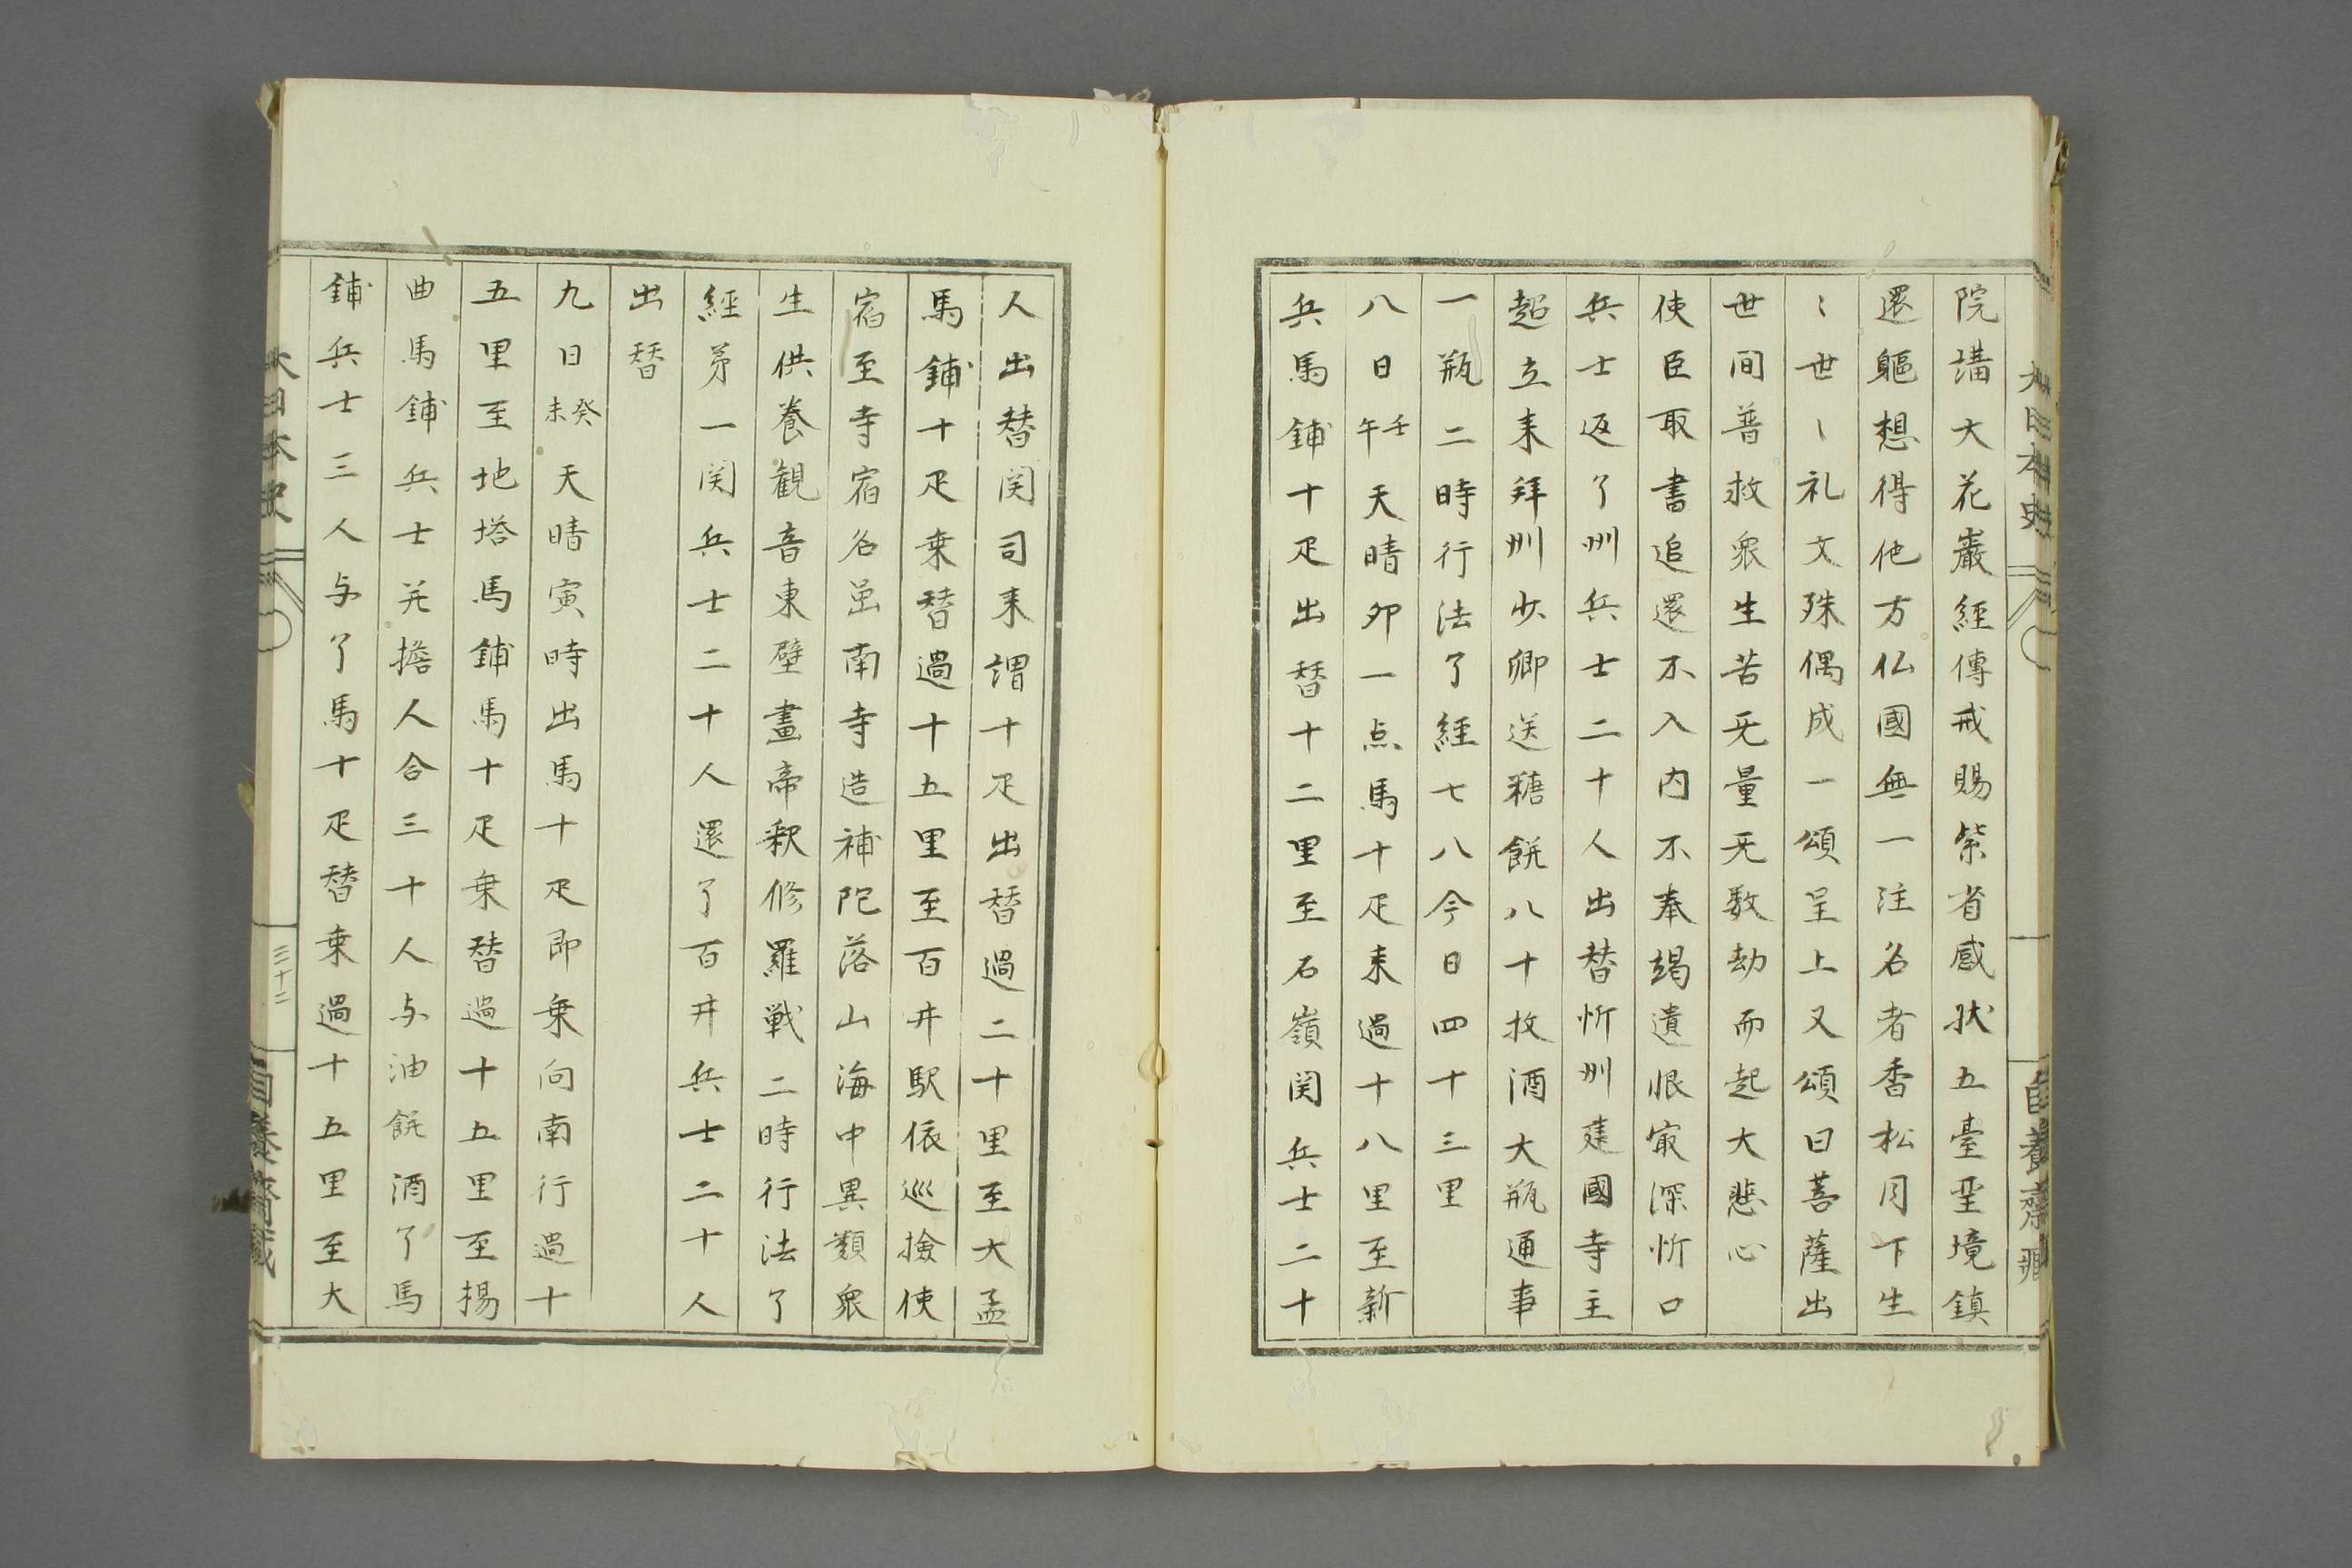 院講大花嚴經傳戒賜紫省感状五臺聖境鎮
還軀想得他方仏國無一注名者香松月下生
〻世〻礼文殊偶成一頌呈上又頌曰菩薩出
世间普救衆生苦无量无数劫而起大悲心
使臣取書追還不入内不奉謁遺恨㝡深忻口
兵士返了州兵士二十人出替忻州莚國寺主
超立来拜州少卿送糖餅八十枚酒大瓶通事
一瓶二時行法了經七八今日四十三里
八日壬午天晴卯一点馬十疋来過十八里至新
兵馬鋪十疋出替十二里至石嶺関兵士二十
人出替関司来謂十疋出替過二十里至大孟
馬鋪十疋乗替過十五里至百井駅依巡撿使
宿至寺宿名邑南寺造補陀落山海中異類衆
生供養観音東壁畫帝釈修羅戦二時行法了
經苐一関兵士二十人還了百井兵士二十人
出替
九日癸未天晴寅時出馬十疋即乗向南行過十
五里至地塔馬鋪馬十疋乗替過十五里至楊
曲馬鋪兵士并擔人合三十人与油餅酒了馬
鋪兵士三人与了馬十疋替乗過十五里至大
大日本史
三十二
自養齋藏